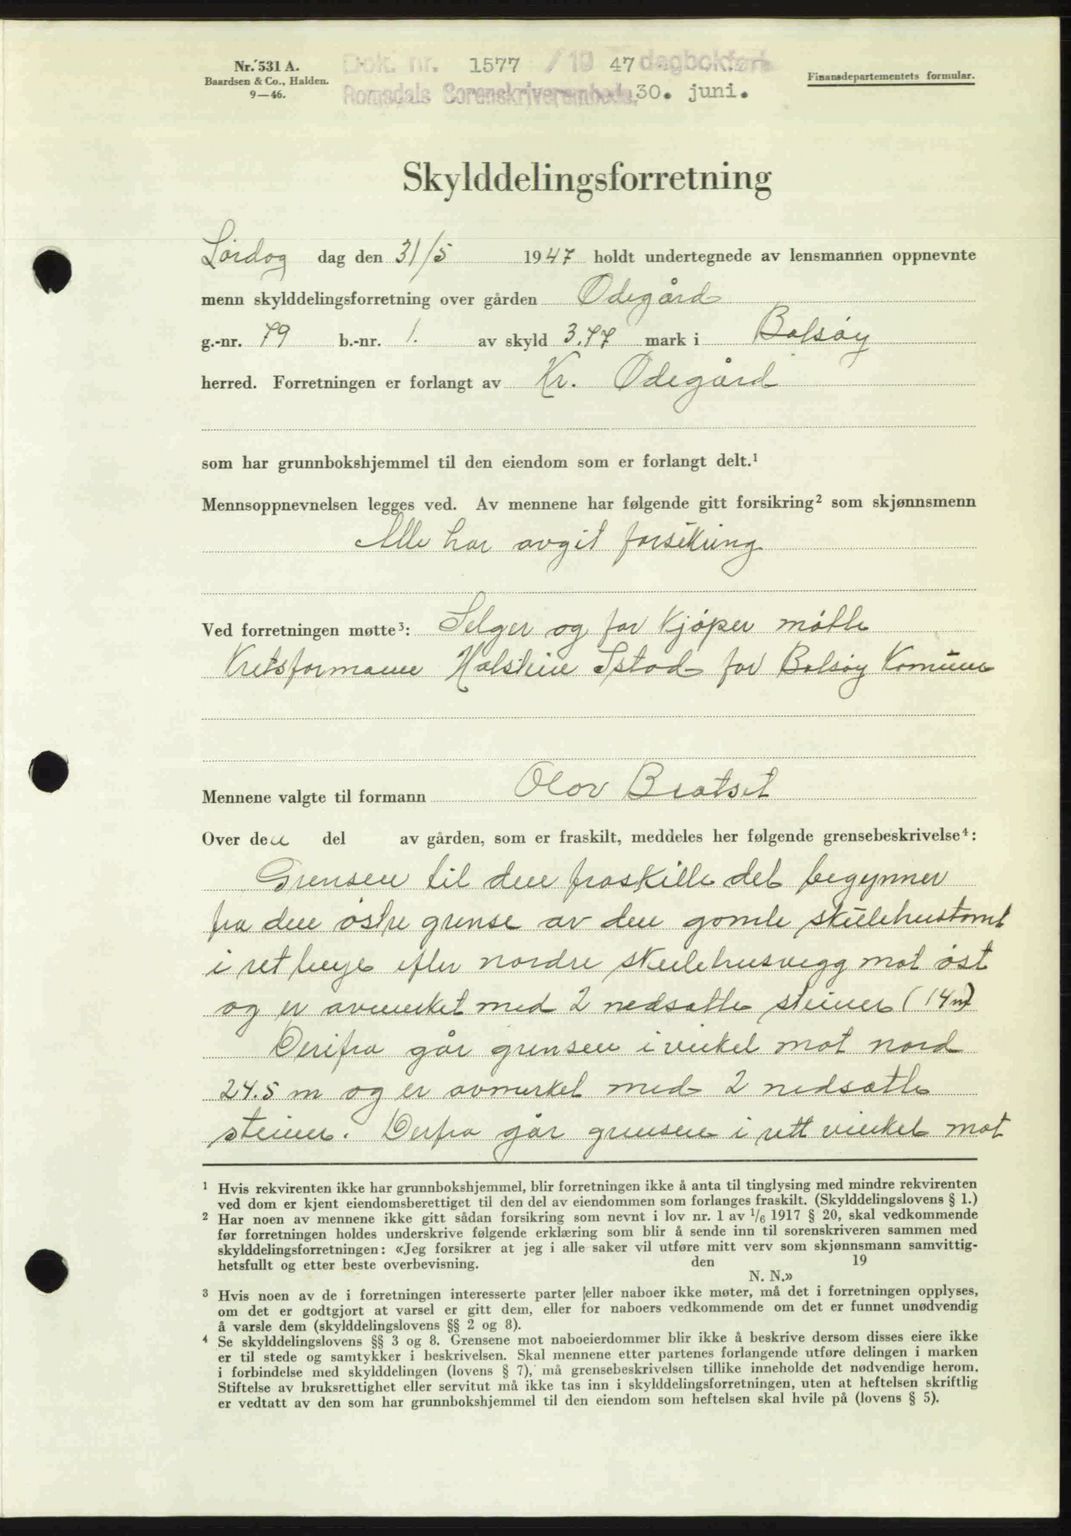 Nr. 531 A.
Baardsen & Co., Halden.
9—46.
Dok. nr. 1577 / 19 47 dagbokført
Romsdals Sorenskriverembede, 30. juni.
Finansdepartementets formular.
Skylddelingsforretning
Lördag dag den 31/5 1947 holdt undertegnede av lensmannen oppnevnte
menn skylddelingsforretning over gården Ödegård
g.-nr. 79 b.-nr. 1. av skyld 3.77 mark i Bolsöy
herred. Forretningen er forlangt av Kr. Ödegård
som har grunnbokshjemmel til den eiendom som er forlangt delt.¹
Mennsoppnevnelsen legges ved. Av mennene har følgende gitt forsikring² som skjønnsmenn
Alle har avgit forsikring
Ved forretningen møtte³: Selger og for Kjöper mötte
Kretsformann Halstein Istad for Bolsöy Komune
Mennene valgte til formann Olav Bratset
Over den del av gården, som er fraskilt, meddeles her følgende grensebeskrivelse⁴:
Grensen til den fraskille del begynner
fra den östre grense av den gamle skulehustomt
i ret linje efter nordre skulehusvegg mot öst
og er avmerket med 2 nedsatte steiner (14 m)
Derifra går grensen i vinkel mot nord
24.5 m og er avmerket med 2 nedsatte
steiner. Derfra går grensen i rett vinkel mot
¹ Hvis rekvirenten ikke har grunnbokshjemmel, blir forretningen ikke å anta til tinglysing med mindre rekvirenten
ved dom er kjent eiendomsberettiget til den del av eiendommen som forlanges fraskilt. (Skylddelingslovens § 1.)
² Har noen av mennene ikke gitt sådan forsikring som nevnt i lov nr. 1 av ¹/₆ 1917 § 20, skal vedkommende
før forretningen holdes underskrive følgende erklæring som blir å sende inn til sorenskriveren sammen med
skylddelingsforretningen: «Jeg forsikrer at jeg i alle saker vil utføre mitt verv som skjønnsmann samvittig-
hetsfullt og etter beste overbevisning. den 19
N. N.»
³ Hvis noen av de i forretningen interesserte parter eller naboer ikke møter, må det i forretningen opplyses,
om det er godtgjort at varsel er gitt dem, eller for naboers vedkommende om det er funnet unødvendig
å varsle dem (skylddelingslovens §§ 2 og 8).
⁴ Se skylddelingslovens §§ 3 og 8. Grensene mot naboeierdommer blir ikke å beskrive dersom disses eiere ikke
er til stede og samtykker i beskrivelsen. Skal mennene etter partenes forlangende utføre delingen i marken
i forbindelse med skylddelingen (lovens § 7), må grensebeskrivelsen tillike inneholde det nødvendige herom.
Stiftelse av bruksrettighet eller servitut må ikke tas inn i skylddelingsforretningen, uten at heftelsen skriftlig
er vedtatt av den som har grunnbokshjemmel til den eiendom som heftelsen skal hvile på (lovens § 5).